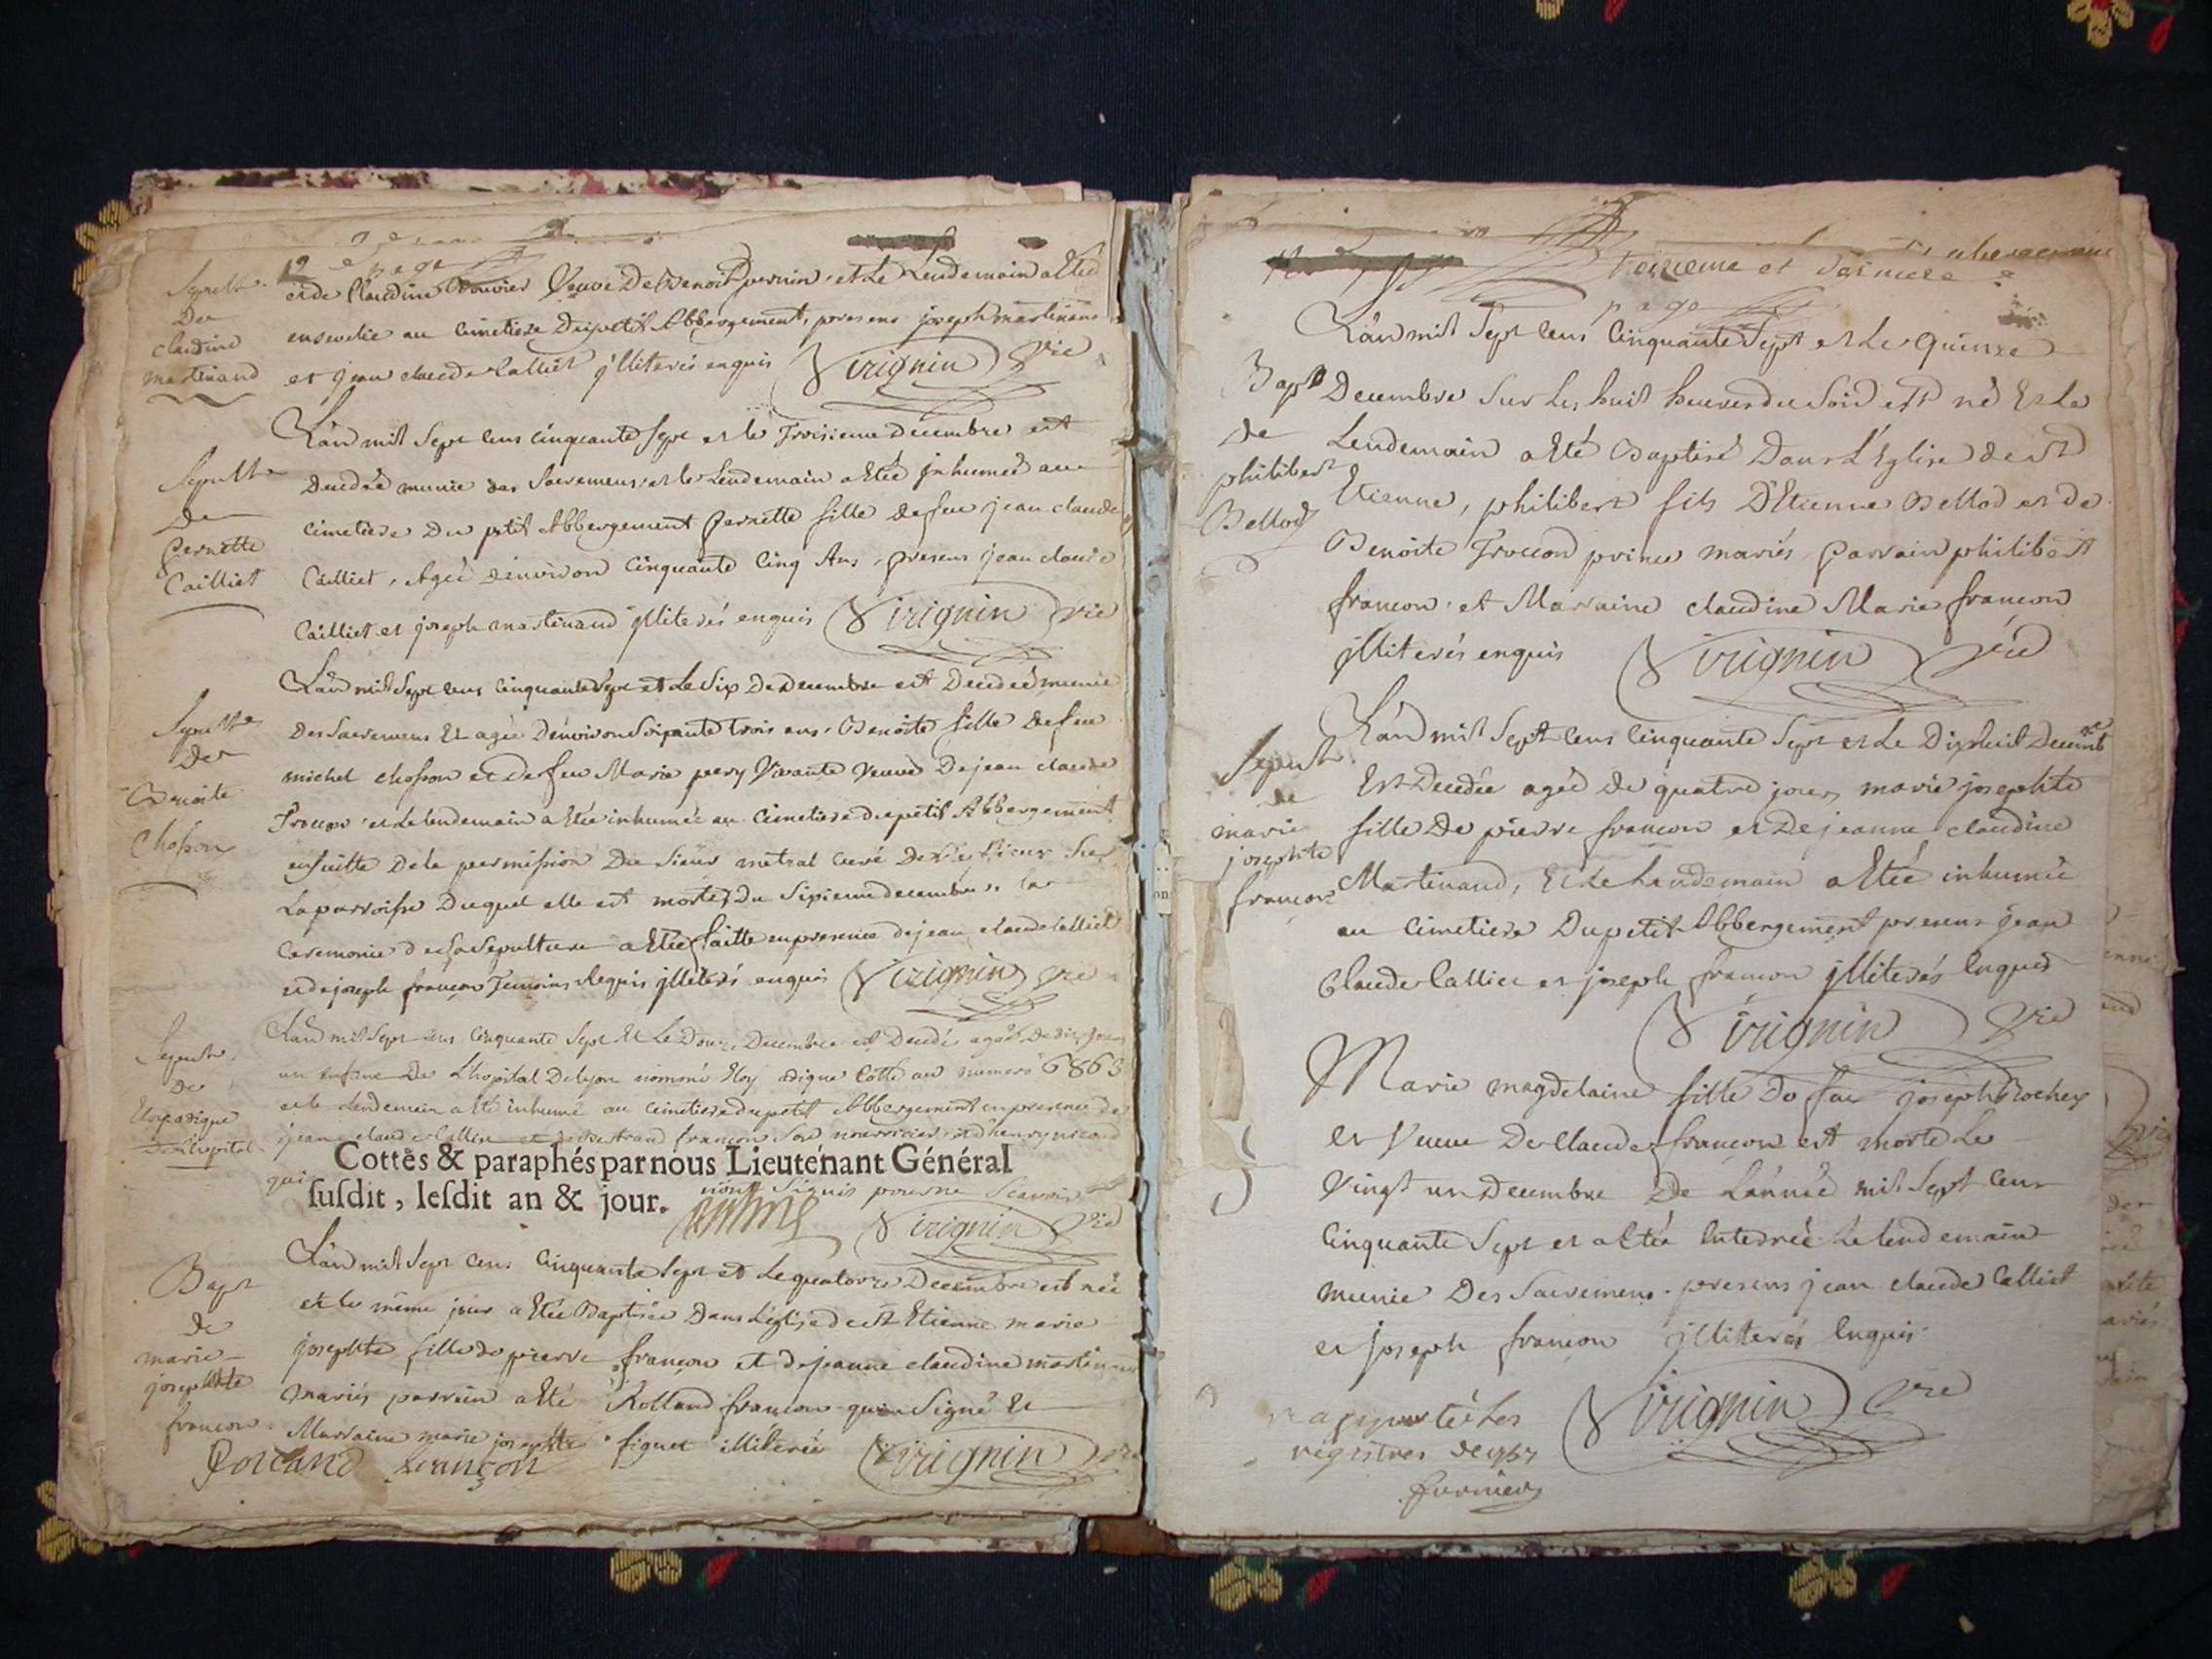 12
page
Sepult.
De
claudine
martinand
et de Claudine Veuve De Benoit pernin et Le Lendemain a Eté
ensevelie au Cimetiere Du petit Abbergement, presens joseph martinand
et jean claude Calliet jlliterés enquis Virignin vic
Sepult
De
Pernette
Cailliet
L'an mil Sept Cens Cinquante Sept et le Troisieme Decembre est
Decedée munie des Sacremens, et le Lendemain a Eté jnhumée au
Cimetiere Du petit Abbergement Pernette fille de feu jean claude
Cailliet, Agée denviron Cinquante Cinq Ans, presens jean claude
Cailliet et joseph martinand jlliterés enquis Virignin vic
Sepult
De
Benoite
Chosson
L'an mil Sept Cens Cinquante Sept et Le Six De Decembre est Decedée munie
Des Sacremens Et agée D'environ Soixante Trois ans, Benoite fille De feu
michel chosson et De feu Marie pery Vivante Veuve De jean claude
Trocon et Le lendemain a Etée inhumée au Cimetiere du petit Abbergement
ensuitte De la permission Du Sieur metral curé De Sur
La parroisse Duquel elle est morte, Du Sixieme decembre, La
Ceremonie de Sa Sepulture a Eté faitte en presence de jean claude Calliet
et de joseph françon Temoins Requis jlliterés enquis Virignin vic
Sepult.
De
Eloy adigue
De L'hopital
L'an mil Sept Cens Cinquante Sept Et Le Douze Decembre est Decedé agé de dix jours
un enfant De L'hopital De lyon nommé Eloy adigue Cotté au numero 6863
et le Lendemain a Eté inhumé au Cimetiere du petit Abbergement en presence de
jean claude Calliet et de Bertrand françon Son nourricier et d'henry
qui
Cottés & paraphés par nous Lieutenant Général
susdit, lesdit an & jour.
nont Signés pour ne Scavoir
Virignin vic
Bapt
de
marie
josephte
françon
L'an mil Sept Cens Cinquante Sept et Le quatorze Decembre est née
et le même jour a Etée Baptisée Dans L'églize de St Etienne marie
josephte fille de pierre françon et de jeanne claudine martinand
mariés parrain a Eté Rolland françon qui a Signé Et
Marraine marie josephte figuet illiterée Virignin vic
Rolland françon
treizieme et Derniere
page
Bapt
de
philibert
Bellod
L'an mil Sept Cens Cinquante Sept et Le Quinze
Decembre Sur Les huit heures du Soir est né Et Le
Lendemain a Eté Baptisé Dans L'Eglise de St
Etienne, philibert fils D'Etienne Bellod et de
Benoite Trocon mariés, Parrain philibert
françon et Marraine claudine Marie françon
jlliterés enquis Virignin vic
Sepult.
de
marie
josephte
françon
L'an mil Sept Cens Cinquante Sept et Le Dixhuit Decemb
re
Est Decedée agée de quatre jours marie josephte
fille De pierre françon et De jeanne claudine
Martinand, Et Le Lendemain a Etée inhumée
au Cimetiere Du petit Abbergement presens jean
Claude Calliet et joseph françon jlliterés Enquis
Virignin vic
Marie magdelaine fille De feu joseph Rochex
Et Veuve De Claude françon est morte Le
Vingt un Decembre De L'année mil Sept Cens
Cinquante Sept et a Etée Enterrée Le lendemain
munie Des Sacremens. presens jean claude Calliet
et joseph françon jlliterés Enquis
Virignin vic
rapporté Les
registres de 1757
furnier